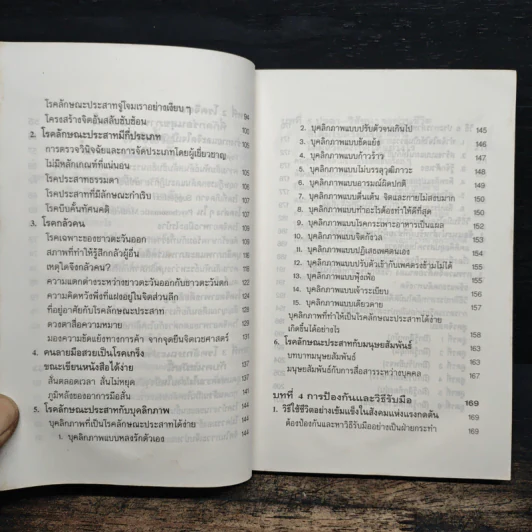 โรคลักษณะประสาทจู่โจมเราอย่างเงียบ ๆ 94
โครงสร้างจิตอันสลับซับซ้อน 105
2. โรคลักษณะประสาทมีกี่ประเภท 105
การตรวจวินิจฉัยและการจัดประเภทโดยผู้เชี่ยวชาญ
ไม่มีหลักเกณฑ์ที่แน่นอน
โรคประสาทธรรมดา
โรคประสาทที่มีลักษณะกำเริบ
โรคบีบคั้นทัศนคติ
3. โรคกลัวคน
โรคเฉพาะของชาวตะวันออก
สภาพที่ทำให้รู้สึกกลัวผู้อื่น
เหตุใดจึงกลัวคน?
ความแตกต่างระหว่างชาวตะวันออกกับชาวตะวันตก
ความคิดหวังพึ่งที่แฝงอยู่ในจิตส่วนลึก
ที่อยู่อาศัยกับโรคลักษณะประสาท
ดวงตาสื่อความหมาย
มองความขัดแย้งทางการค้า จากจุดยืนจิตเวชศาสตร์
4. คนลายมือสวยเป็นโรคเกร็ง
ขณะเขียนหนังสือได้ง่าย
สั่นตลอดเวลา สั่นไม่หยุด
ภูมิหลังของอาการมือสั่น
5. โรคลักษณะประสาทกับบุคลิกภาพ 144
บุคลิกภาพที่เป็นโรคลักษณะประสาทได้ง่าย 144
1. บุคลิกภาพแบบหลงรักตัวเอง 144
2. บุคลิกภาพแบบปรับตัวจนเกินไป 145
3. บุคลิกภาพแบบขัดแย้ง 147
4. บุคลิกภาพแบบก้าวร้าว 148
5. บุคลิกภาพแบบไม่บรรลุวุฒิภาวะ 148
6. บุคลิกภาพแบบอารมณ์ผิดปกติ 149
7. บุคลิกภาพแบบตื่นเต้น จิตและกายไม่สอบมาก 150
8. บุคลิกภาพแบบทำอะไรต้องทำให้ดีที่สุด 150
9. บุคลิกภาพแบบโรคกระเพาะอาหารเป็นแผล 150
10. บุคลิกภาพแบบจิตกังวล 153
11. บุคลิกภาพแบบปฏิเสธเพศตนเอง 154
12. บุคลิกภาพแบบปรับตัวเข้ากับเพศตรงข้ามไม่ได้ 155
13. บุคลิกภาพแบบฟุ้งเฟ้อ 155
14. บุคลิกภาพแบบเจ้าระเบียบ 156
15. บุคลิกภาพแบบเดียวดาย 157
บุคลิกภาพที่ทำให้เป็นโรคลักษณะประสาทได้ง่าย
เกิดขึ้นได้อย่างไร 158
6. โรคลักษณะประสาทกับมนุษยสัมพันธ์ 163
บทบาทมนุษยสัมพันธ์ 163
มนุษยสัมพันธ์กับการสื่อสารระหว่างบุคคล
บทที่ 4 การป้องกันและวิธีรับมือ 169
1. วิธีใช้ชีวิตอย่างเข้มแข็งในสังคมแห่งแรงกดดัน 169
ต้องป้องกันและหาวิธีรับมืออย่างเป็นฝ่ายกระทำ 169